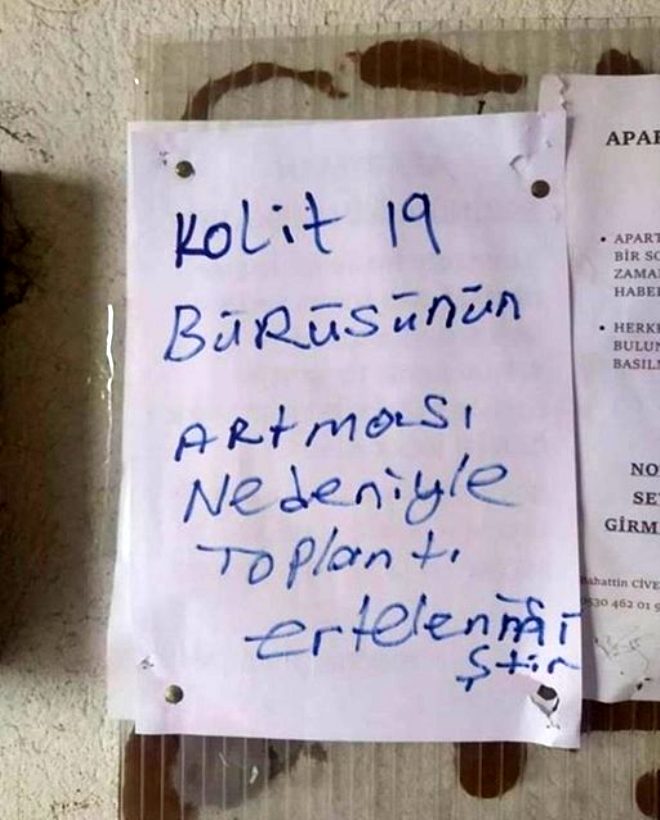 Kolit 19
BÜRÜSÜNÜN
ARTMASI
Nedeniyle
Toplantı
ertelenmi
ştir
APAR
• APART
BİR SO
ZAMA
HABE
• HERKE
BULUN
BASILM
NO
SE
GİRM
ahattin CİVE
0530 462 01 9